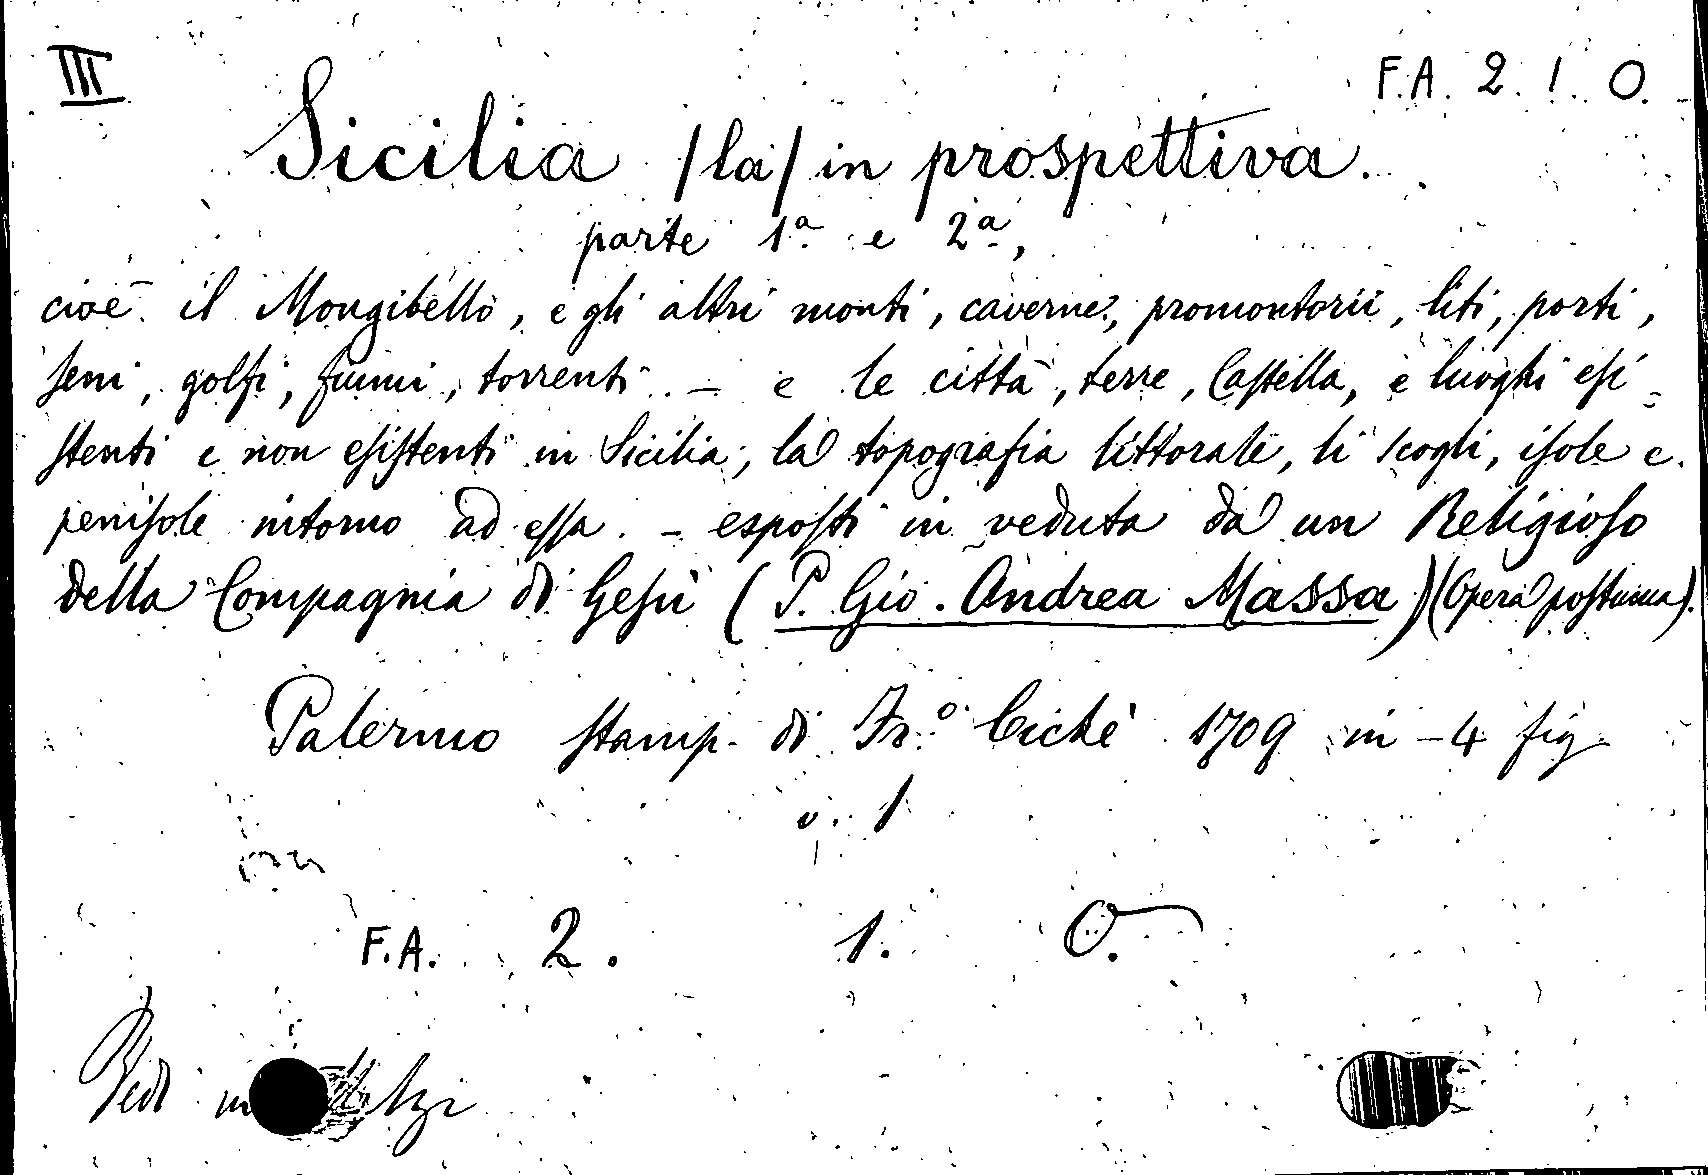 III
F.A. 2. 1. O.
Sicilia /la/ in prospettiva.
parte 1ª e 2ª,
cioè il Mongibello, e gli altri monti, caverne, promontorii, liti, porti,
seni, golfi, fiumi, torrenti. - e le città, terre, Castella, e luoghi esi-
stenti e non esistenti in Sicilia, la topografia littorale, li scogli, isole e
penisole intorno ad essa. - esposti in veduta da un Religioso
della Compagnia di Gesù (P. Gio. Andrea Massa) (Opera postuma).
Palermo stamp. di Fr.º Cichè 1709 in-4 fig.
v. 1
F.A. 2. 1. O.
Vedi